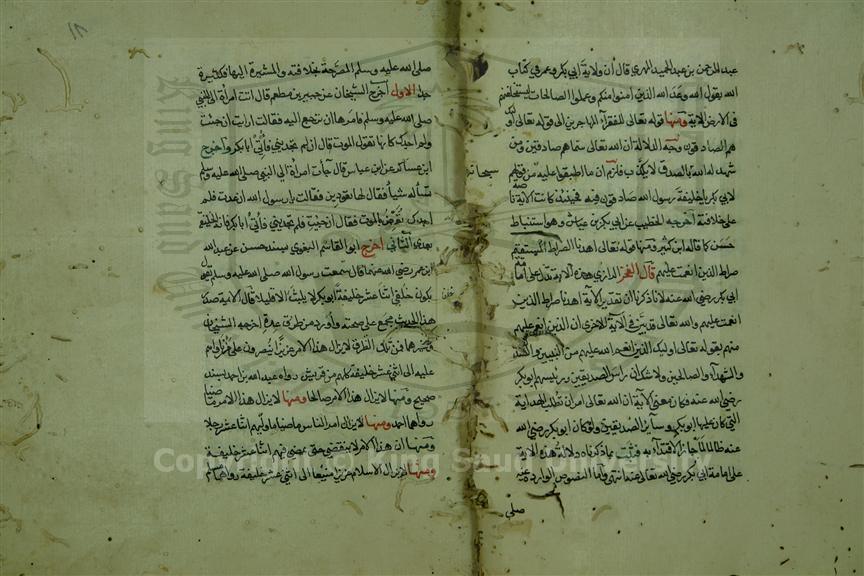 عبد الرحمن بن عبد الحميد المهري قال أن ولاية ابي بكر وعمر في كتاب
الله يقول الله وعد الله الذين امنوا منكم وعملوا الصالحات ليستخلفنهم
في الارض الاية ومنها قوله تعالى للفقراء المهاجرين الى قوله تعالى اولئك
هم الصادقون وجه الدلالة ان الله تعالى سماهم صادقين ومن
شهد له الله بالصدق لا يكذب فلزم ان ما اطبقوا عليه من قولهم
لابي بكر يا خليفة رسول الله صادقون فيه فحينئذ كانت الاية ناصة
على خلافته اخرجه الخطيب عن ابي بكر بن عياش وهو استنباط
حسن كما قاله ابن كثير ومنها قوله تعالى اهدنا الصراط المستقيم
صراط الذين انعمت عليهم قال الفخر الرازي هذه الاية تدل على امامة
ابي بكر رضي الله عنه لانا ذكرنا ان تقدير الآية اهدنا صراط الذين
انعمت عليهم والله تعالى قد بين في الآية الاخرى ان الذين انعم عليهم
منهم بقوله تعالى اولئك الذين انعم الله عليهم من النبيين والصديقين
والشهداء والصالحين ولا شك ان راس الصديقين ورئيسهم ابو بكر
رضي الله عنه فكان معنى الآية ان الله تعالى امر ان نطلب الهداية
التي كان عليها ابو بكر وسائر الصديقين ولو كان ابو بكر رضي الله
عنه ظالما لما جاز الاقتداء به فثبت بما ذكرناه دلالة هذه الآية
على امامة ابي بكر رضي الله تعالى عنه انتهى واما النصوص الواردة عنه
صلى
سبحانه
١٨
صلى الله عليه وسلم المصرحة بخلافته والمشيرة اليها فكثيرة
جدا الاول اخرج الشيخان عن جبير بن مطعم قال اتت امرأة الى النبي
صلى الله عليه وسلم فامرها ان ترجع اليه فقالت ارايت ان جئت
ولم اجدك كانها تقول الموت قال ان لم تجديني فأتي ابا بكر واخرج
ابن عساكر عن ابن عباس قال جاءت امرأة الى النبي صلى الله عليه وسلم
تسأله شيأ فقال لها تعودين فقالت يا رسول الله ان عدت فلم
اجدك تعرض بالموت فقال ان جئت فلم تجديني فأتي ابا بكر فانه الخليفة
بعدي الثاني اخرج ابو القاسم البغوي بسند حسن عن عبد الله
ابن عمر رضي الله عنهما قال سمعت رسول الله صلى الله عليه وسلم يقول
يكون خلفي اثنا عشر خليفة ابو بكر لا يلبث الا قليلا قال الائمة صدر
هذا الحديث مجمع على صحته وأورد من طرق عدة اخرجه الشيخان
وغيرهما فمن تلك الطرق لا يزال هذا الامر عزيزا ينصرون على من ناواهم
عليه الى اثني عشر خليفة كلهم من قريش رواه عبد الله بن احمد بسند
صحيح ومنها لا يزال هذا الامر صالحا ومنها لا يزال هذا الامر ماضيا
رواهما احمد ومنها لا يزال امر الناس ماضيا ما وليهم اثنا عشر رجلا
ومنها ان هذا الامر لا ينقضي حتى يمضي فيهم اثنا عشر خليفة
ومنها لا يزال الاسلام عزيزا منيعا الى اثني عشر خليفة رواهما مسلم